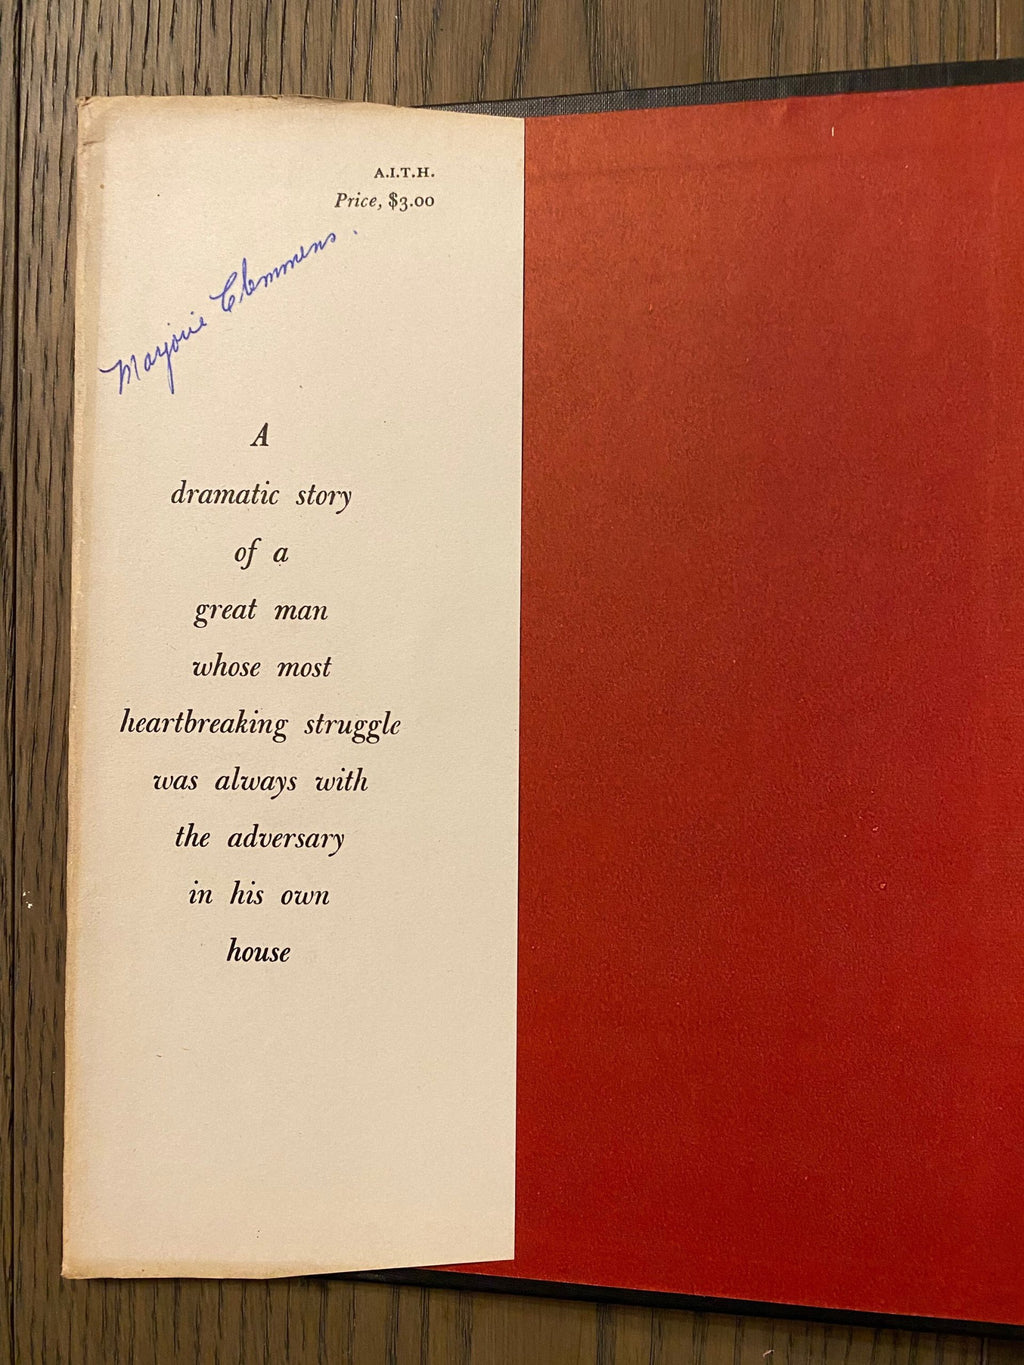 A.I.T.H.
Price, $3.00
Marjorie Clemmens.
A
dramatic story
of a
great man
whose most
heartbreaking struggle
was always with
the adversary
in his own
house